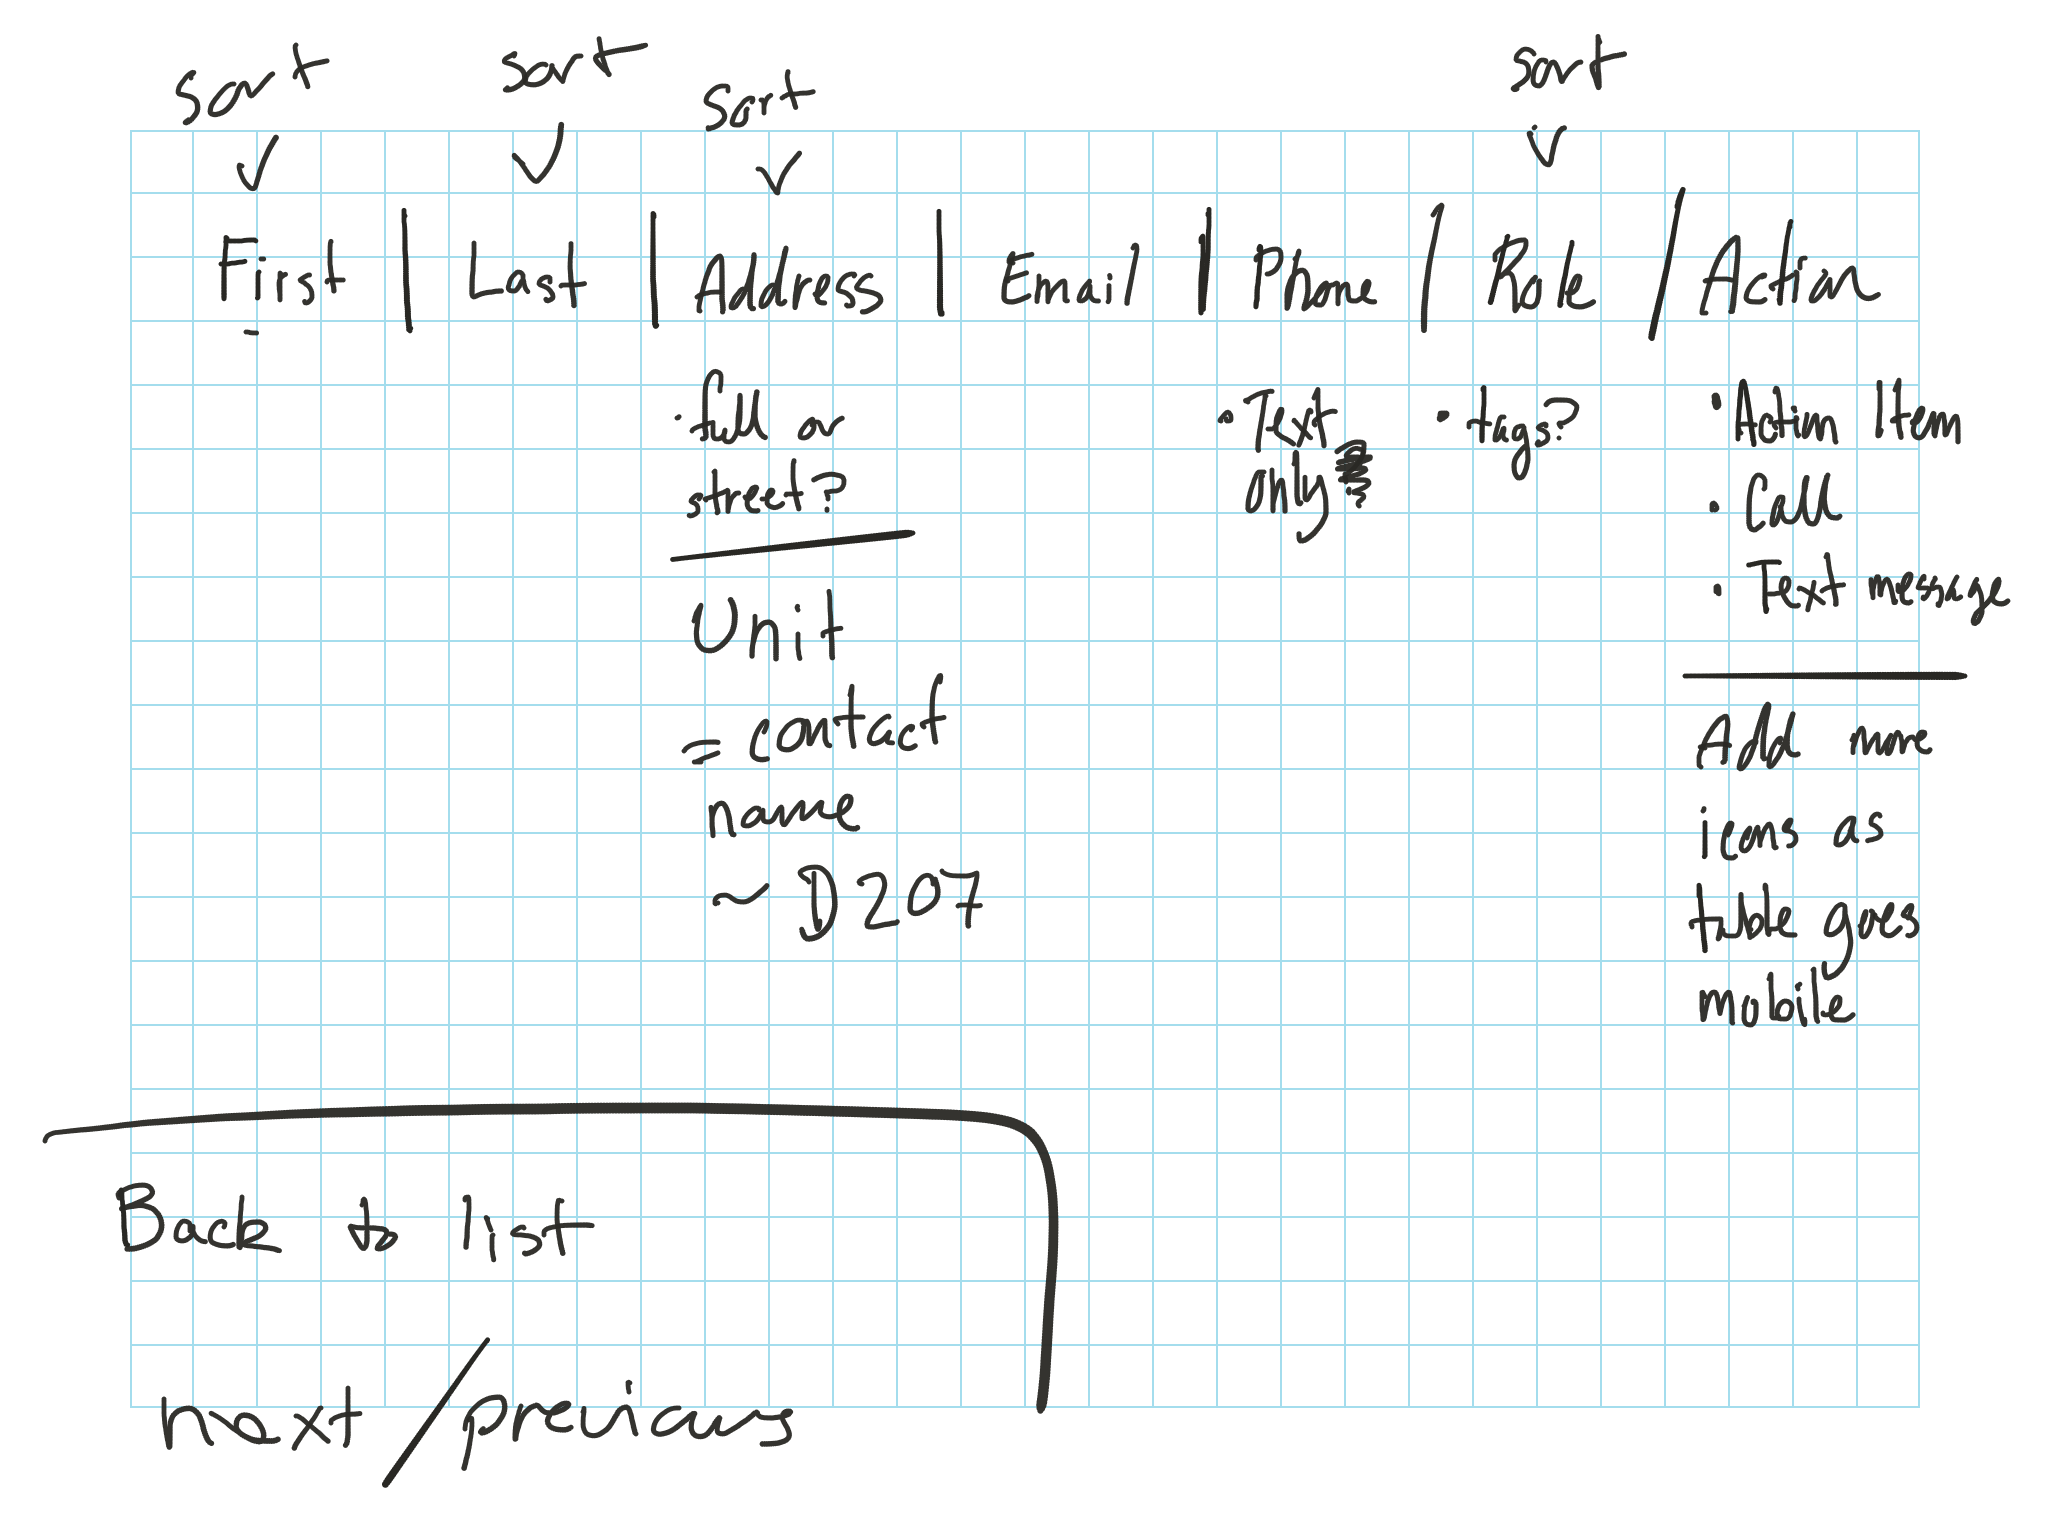 sort sort sort sort
First | Last | Address | Email | Phone / Role / Action
· full or
street?
Unit
= contact
name
~ D207
· Text
only
· tags?
· Action Item
· Call
· Text message
Add more
icons as
table goes
mobile
Back to list
next / previous